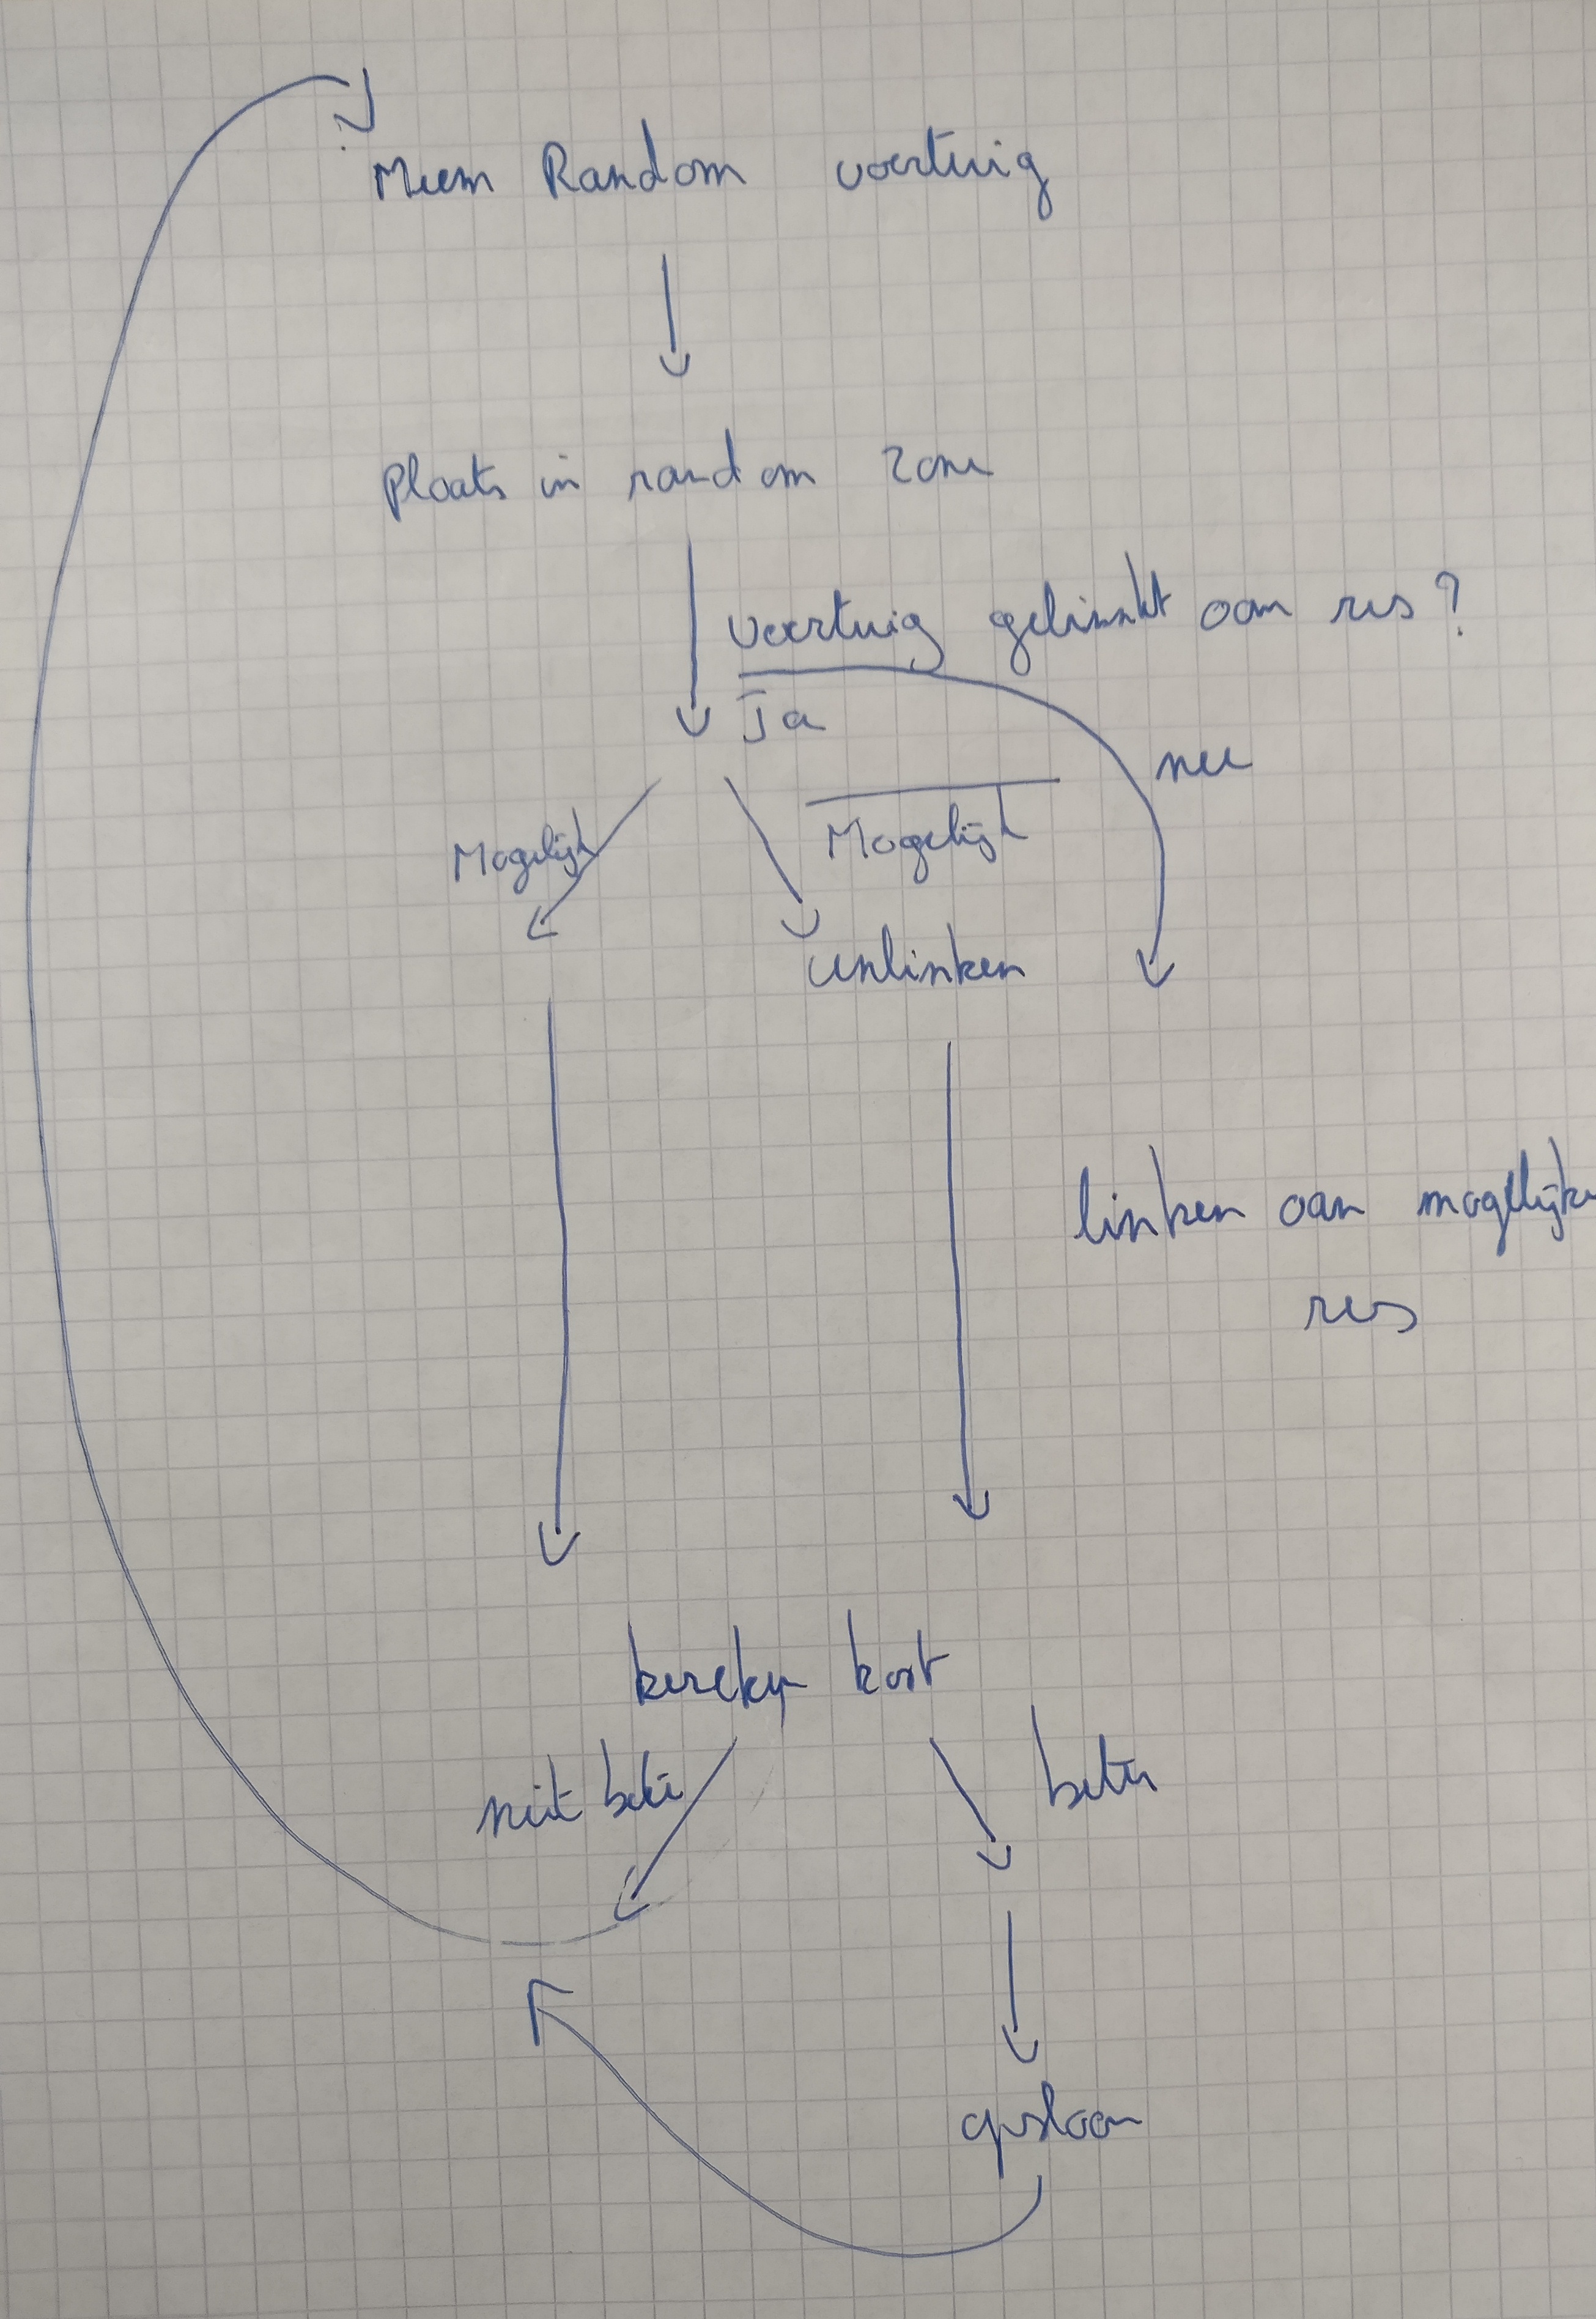 Neem Random voertuig
Plaats in random zone
voertuig gelinkt aan res?
Ja
nee
Mogelijk
Mogelijk
unlinken
linken aan mogelijke
res
bereken kost
niet beter
beter
opslaan